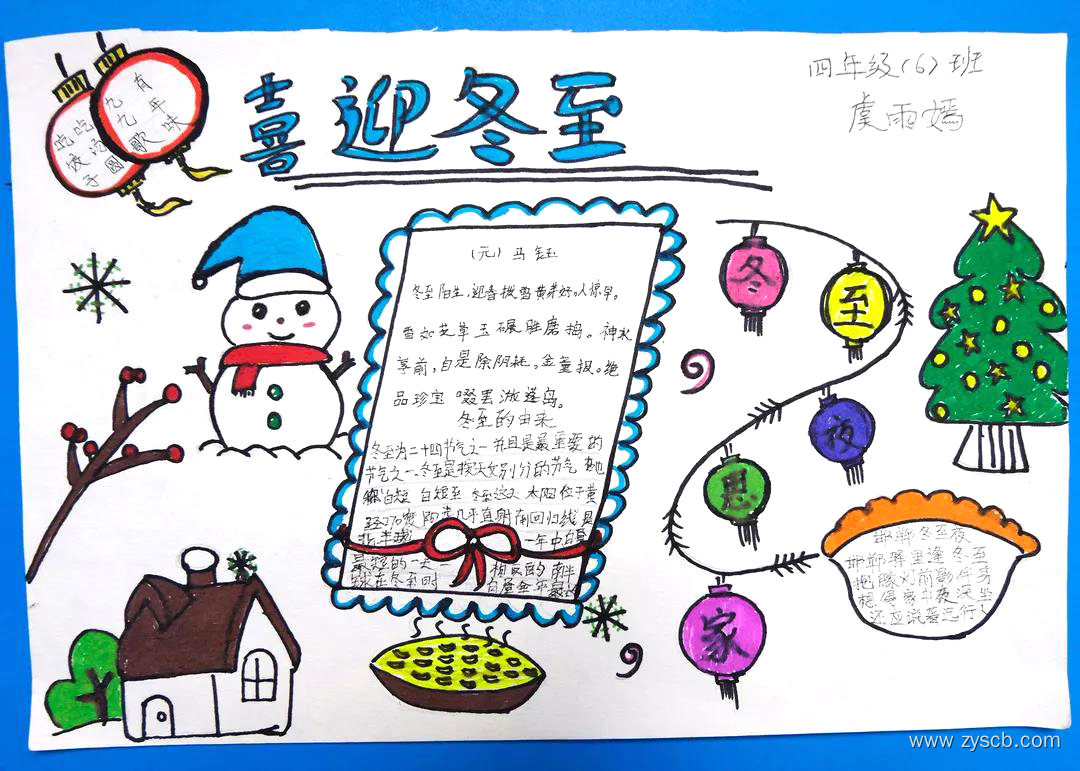 喜迎冬至
四年级(6)班
虞雨嫣
有年味
九九歌
吃汤圆
吃饺子
(元)马钰
冬至阳生,迎春换雪黄芽好。人惊早。
雪如芝草玉碾难磨捣。神水
萼前,自是除阴耗。金童报。绝
品珍宝 啜罢游蓬岛。
冬至的由来
冬至为二十四节气之一并且是最重要的
节气之一、冬至是按天文划分的节气
白短 白短至 冬至这天 太阳位于黄
经270度 阳光几乎直射南回归线是
北半球 一年中白昼
最短的一天 相应的 南半
球在冬至时 白昼全年最
冬
至
夜
思
家
邯郸冬至夜
邯郸驿里逢冬至
抱膝灯前影伴身
想得家中夜深坐
还应说着远行人
www.zyscb.com